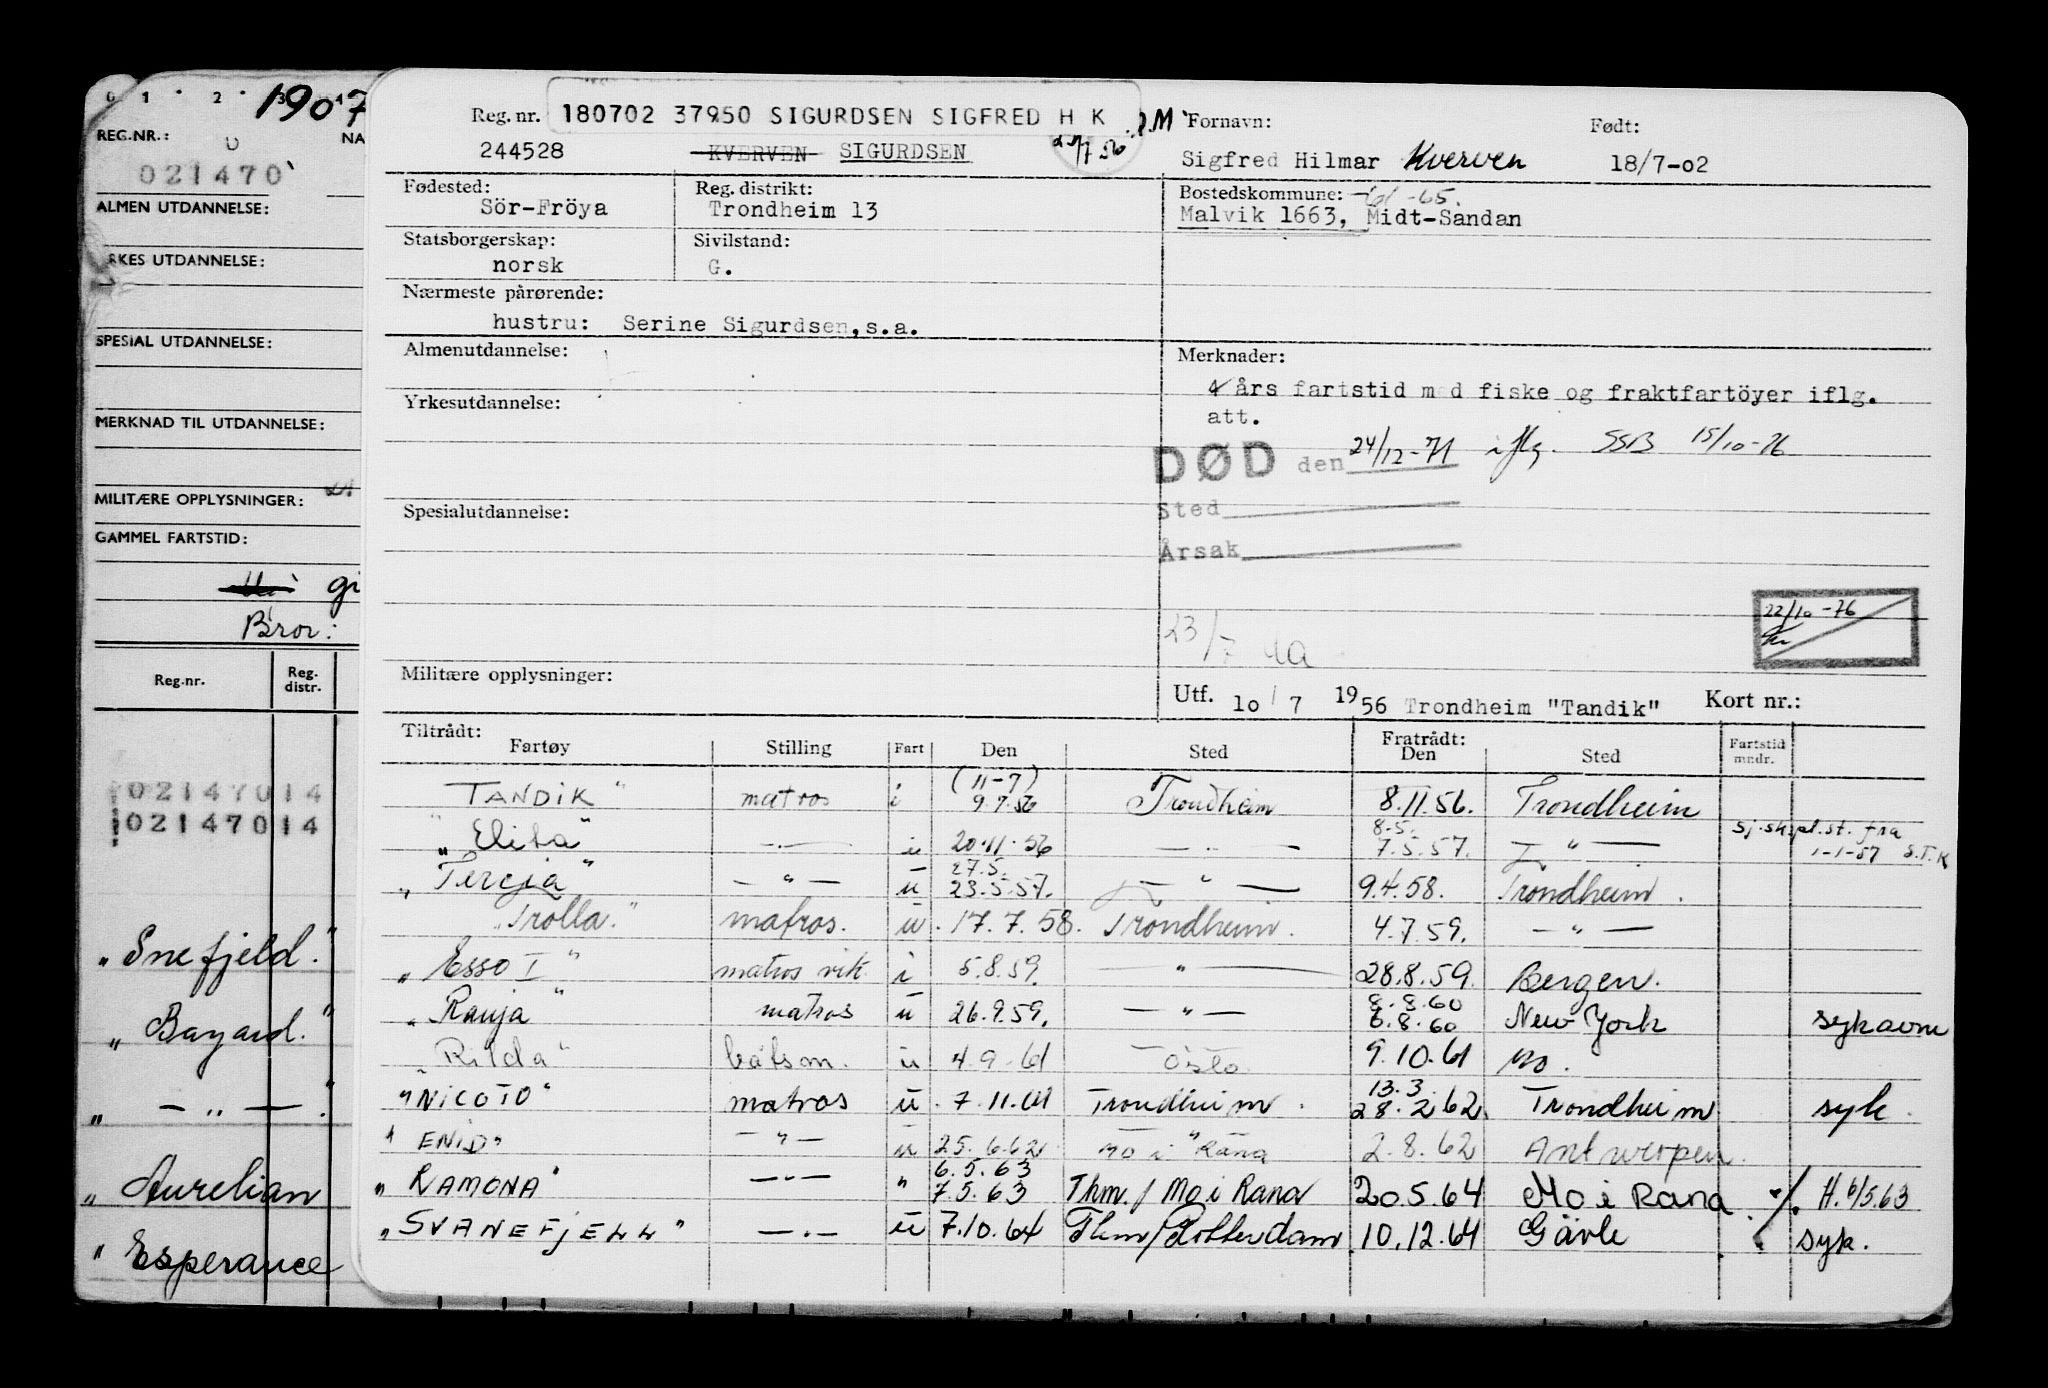 0 1 2 3
1907
REG.NR.:
NA
021470
ALMEN UTDANNELSE:
RKES UTDANNELSE:
SPESIAL UTDANNELSE:
MERKNAD TIL UTDANNELSE:
MILITÆRE OPPLYSNINGER:
GAMMEL FARTSTID:
gi
Bror:
Reg.nr. Reg. distr.
02147014
02147014
"Snefjeld."
"Bayard."
" — " — "
"Aurelian
"Esperance
Reg. nr. 180702 37950 SIGURDSEN SIGFRED H K
244528 KVERVEN SIGURDSEN 23/7 56
Fornavn: Født:
Sigfred Hilmar Kverven 18/7-02
Fødested: Reg. distrikt: Bostedskommune: -61-65.
Sör-Fröya Trondheim 13 Malvik 1663, Midt-Sandan
Statsborgerskap: Sivilstand:
norsk G.
Nærmeste pårørende:
hustru: Serine Sigurdsen,s.a.
Almenutdannelse: Merknader:
4 års fartstid med fiske og fraktfartöyer iflg.
Yrkesutdannelse: att.
DØD den 24/12-71 iflg. SSB 15/10-76
Spesialutdannelse: Sted
Årsak
22/10-76
23/7
Militære opplysninger:
Utf. 10/7 1956 Trondheim "Tandik" Kort nr.:
Tiltrådt: Fratrådt:
Fartøy Stilling Fart Den Sted Den Sted Fartstid mndr.
(11-7)
TANDIK" matros i 9.7.56 Trondheim 8.11.56. Trondheim
8.5.
"Elita" —"— u 20.11.56 —"— 7.5.57. —"— sj.skpl.st. fra 1-1-57 S.T.K
27.5.
"Tercja" —"— u 23.5.57. —"— 9.4.58. Trondheim.
"Trolla." matros. u. 17.7.58. Trondheim. 4.7.59. —"—
"Esso I" matros vik. i 5.8.59. —"— 28.8.59. Bergen.
8.8.60
"Ranja" matros u 26.9.59. —"— 6.8.60 New York sykavm
"Rilda" båtsm. u 4.9-61 Oslo. 9.10.61 Mo.
13.3.
"NICOTO" matros u. 7.11.61 Trondheim. 28.2.62. Trondheim syk.
"ENID" —"— u 25.6.62 Mo i Rana 2.8.62 Antwerpen.
6.5.63
"RAMONA" —"— " 7.5.63 Thm./Mo i Rana 20.5.64 Mo i Rana ./. H. 6/5.63
"SVANEFJELL" —"— u 7.10.64 Thm/Rotterdam 10.12.64 Gävle syk.